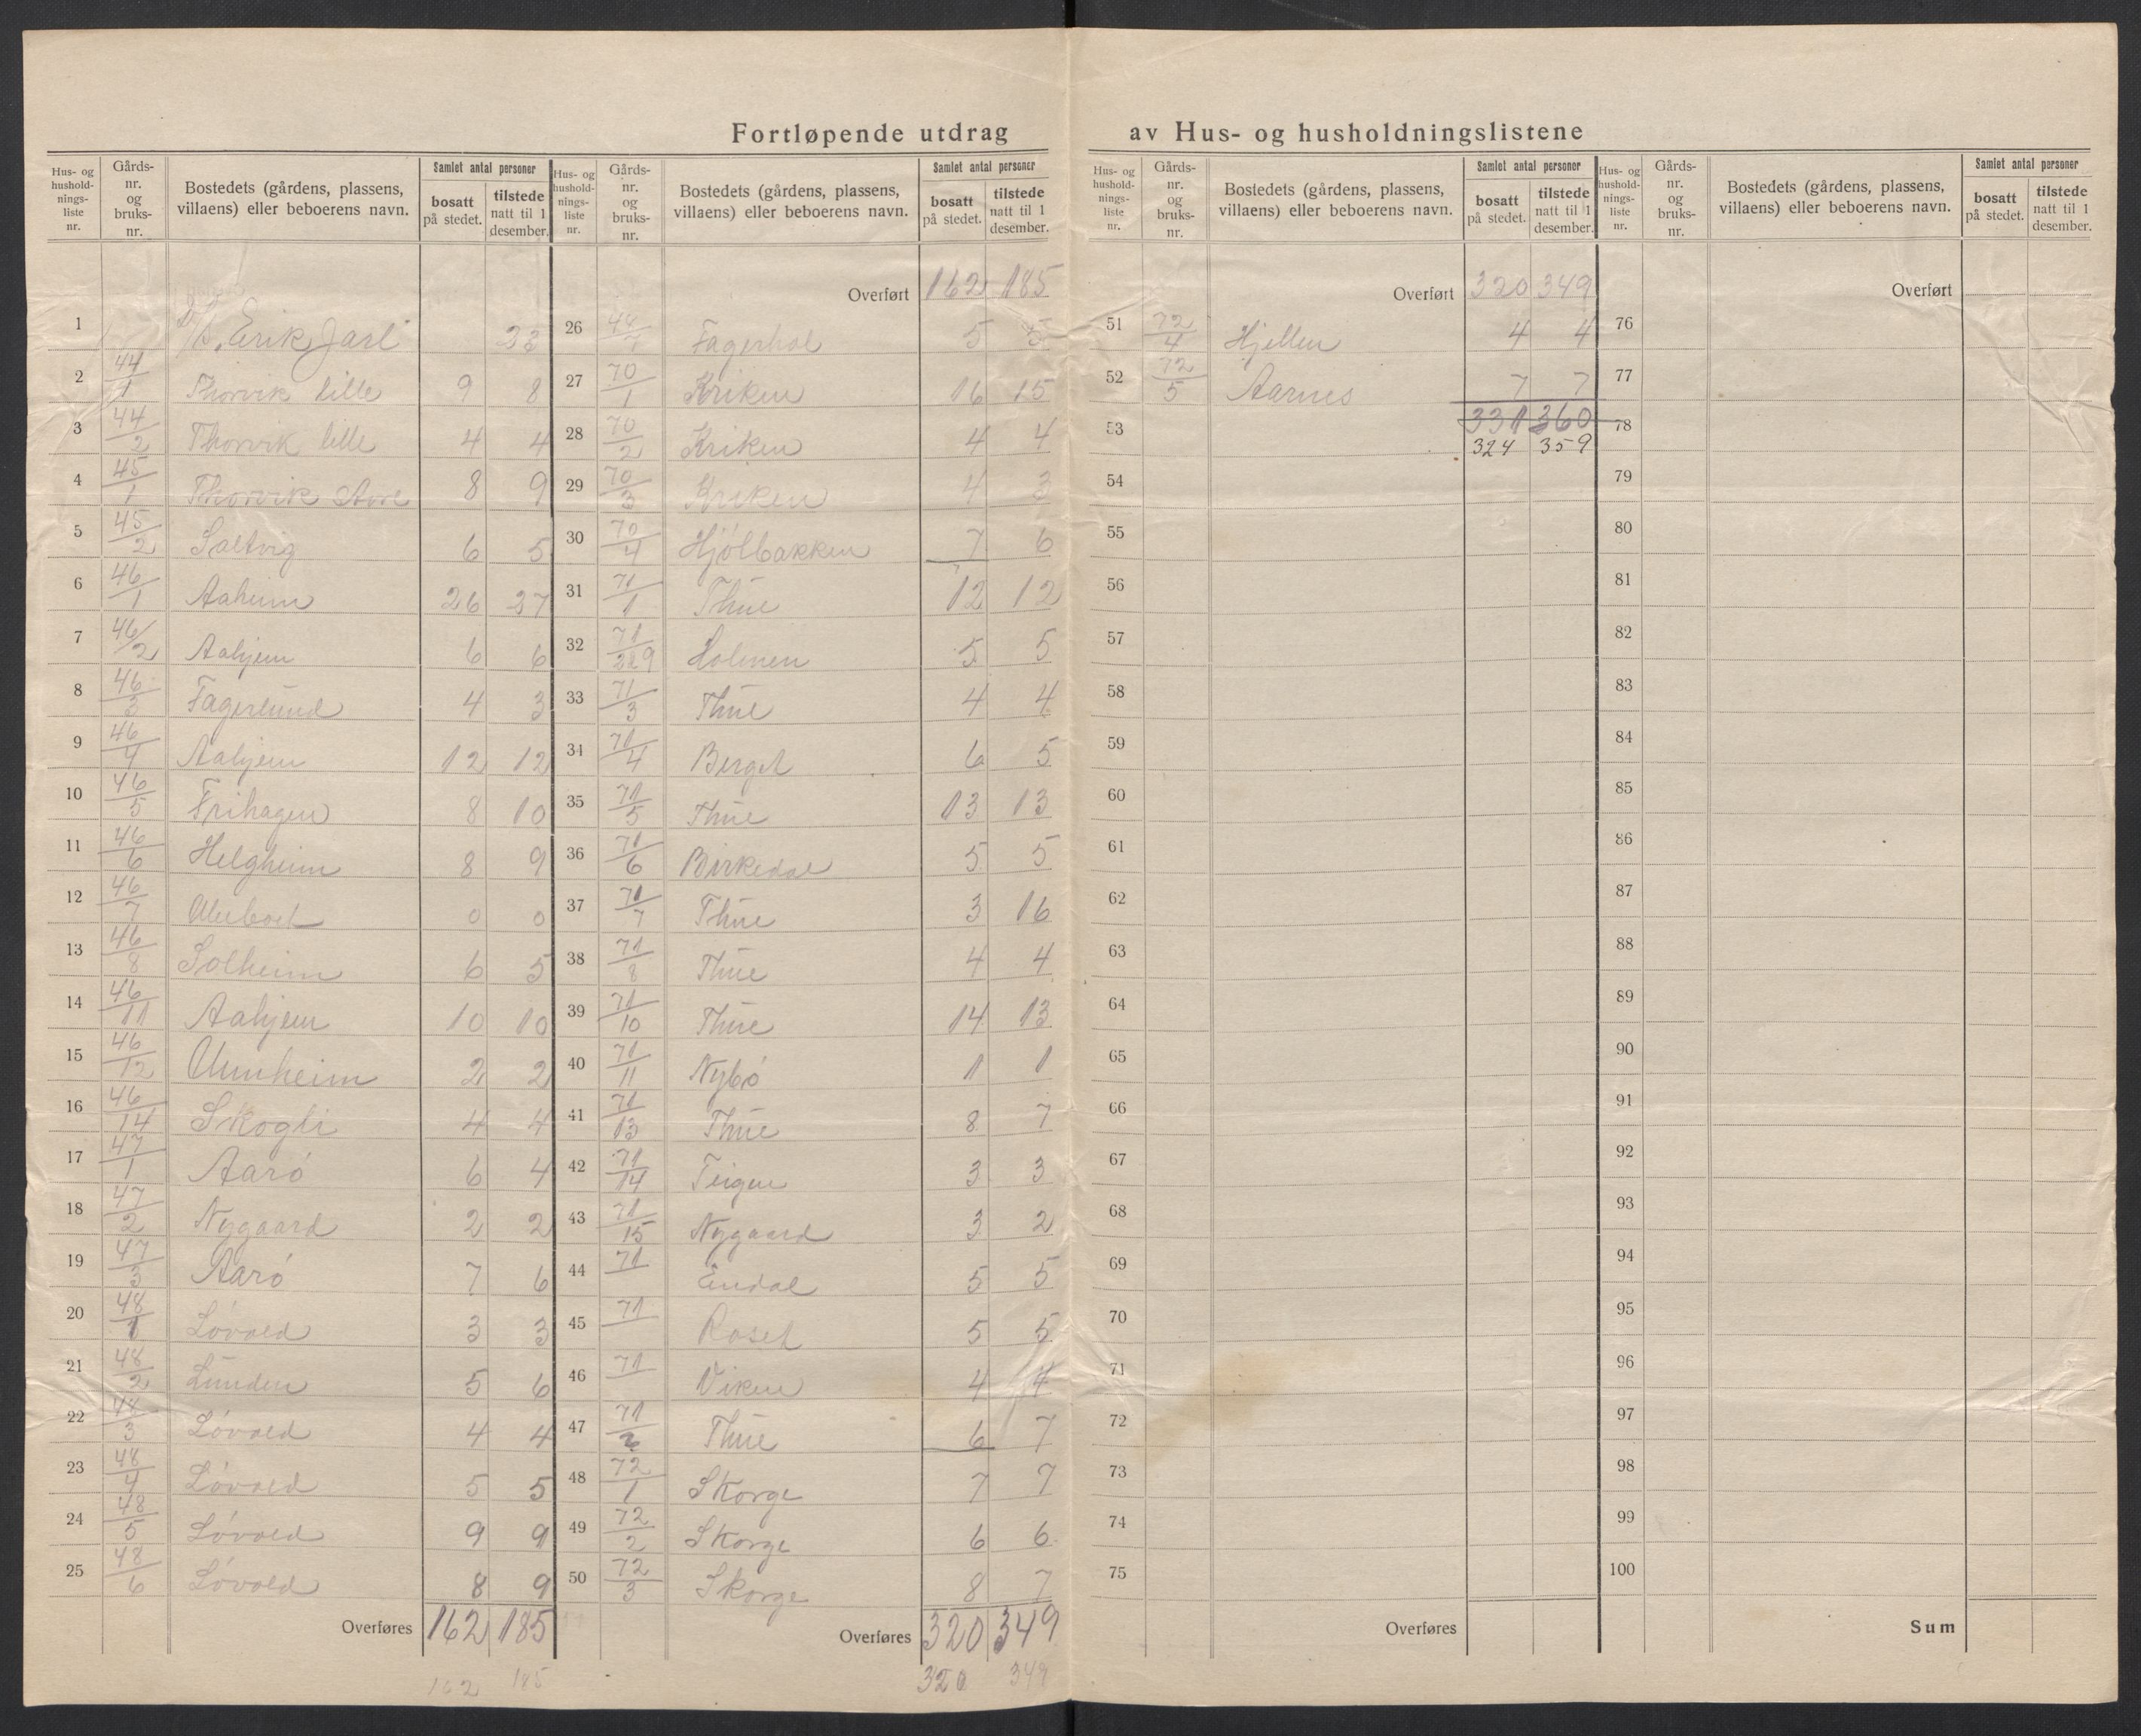 Fortløpende utdrag av Hus- og husholdningslistene
Hus- og hushold- nings- liste nr. | Gårds- nr. og bruks- nr. | Bostedets (gårdens, plassens, villaens) eller beboerens navn. | Samlet antal personer | bosatt på stedet. | tilstede natt til 1 desember.
1 D/S. Erik Jarl 23
2 44/1 Thorvik lille 9 8
3 44/2 Thorvik lille 4 4
4 45/1 Thorvik store 8 9
5 45/2 Saltvig 6 5
6 46/1 Aaheim 26 27
7 46/2 Aahjem 6 6
8 46/3 Fagerlund 4 3
9 46/4 Aahjem 12 12
10 46/5 Frihagen 8 10
11 46/6 Helgheim 8 9
12 46/7 0 0
13 46/8 Solheim 6 5
14 46/11 Aahjem 10 10
15 46/12 2 2
16 46/14 Skogli 4 4
17 47/1 Aarö 6 4
18 47/2 Nygaard 2 2
19 47/3 Aarö 7 6
20 48/1 Lövold 3 3
21 48/2 Lunden 5 6
22 48/3 Lövold 4 4
23 48/4 Lövold 5 5
24 48/5 Lövold 9 9
25 48/6 Lövold 8 9
Overføres 162 185
162 185
Hus- og hushold- nings- liste nr. | Gårds- nr. og bruks- nr. | Bostedets (gårdens, plassens, villaens) eller beboerens navn. | Samlet antal personer | bosatt på stedet. | tilstede natt til 1 desember.
Overført 162 185
26 48/7 Fagerhol 5 5
27 70/1 Kriken 16 15
28 70/2 Kriken 4 4
29 70/3 Kriken 4 3
30 70/4 Hjölbakken 7 6
31 71/1 Thue 12 12
32 71 Holmen 5 5
33 71/3 Thue 4 4
34 71/4 Berget 6 5
35 71/5 Thue 13 13
36 71/6 Birkedal 5 5
37 71/7 Thue 3 16
38 71/8 Thue 4 4
39 71/10 Thue 14 13
40 71/11 Nybö 1 1
41 71/13 Thue 8 7
42 71/14 Teigen 3 3
43 71/15 Nygaard 3 2
44 71 Endal 5 5
45 71 Roset 5 5
46 71 Viken 4 4
47 71/2 Thue 6 7
48 72/1 Skorge 7 7
49 72/2 Skorge 6 6
50 72/3 Skorge 8 7
Overføres 320 349
320 349
Hus- og hushold- nings- liste nr. | Gårds- nr. og bruks- nr. | Bostedets (gårdens, plassens, villaens) eller beboerens navn. | Samlet antal personer | bosatt på stedet. | tilstede natt til 1 desember.
Overført 320 349
51 72/4 Hjellen 4 4
52 72/5 Aarnes 7 7
53 331 360
324 359
54
55
56
57
58
59
60
61
62
63
64
65
66
67
68
69
70
71
72
73
74
75
Overføres
Hus- og hushold- nings- liste nr. | Gårds- nr. og bruks- nr. | Bostedets (gårdens, plassens, villaens) eller beboerens navn. | Samlet antal personer | bosatt på stedet. | tilstede natt til 1 desember.
Overført
76
77
78
79
80
81
82
83
84
85
86
87
88
89
90
91
92
93
94
95
96
97
98
99
100
Sum